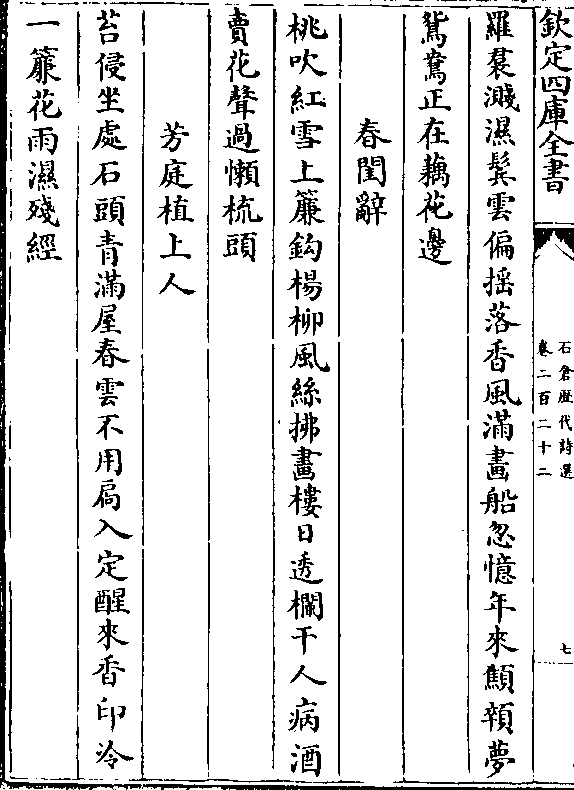 欽定四庫全書
石倉歷代詩選
卷二百二十二
七
羅裠濺濕鬂雲偏揺落香風滿畫船忽憶年來顦顇夢
鴛鴦正在藕花邊
春閨辭
桃吹紅雪上簾鈎楊柳風絲拂畫樓日透欄干人病酒
賣花聲過懶梳頭
芳庭植上人
苔侵坐處石頭青滿屋春雲不用扃入定醒來香印冷
一簾花雨濕殘經